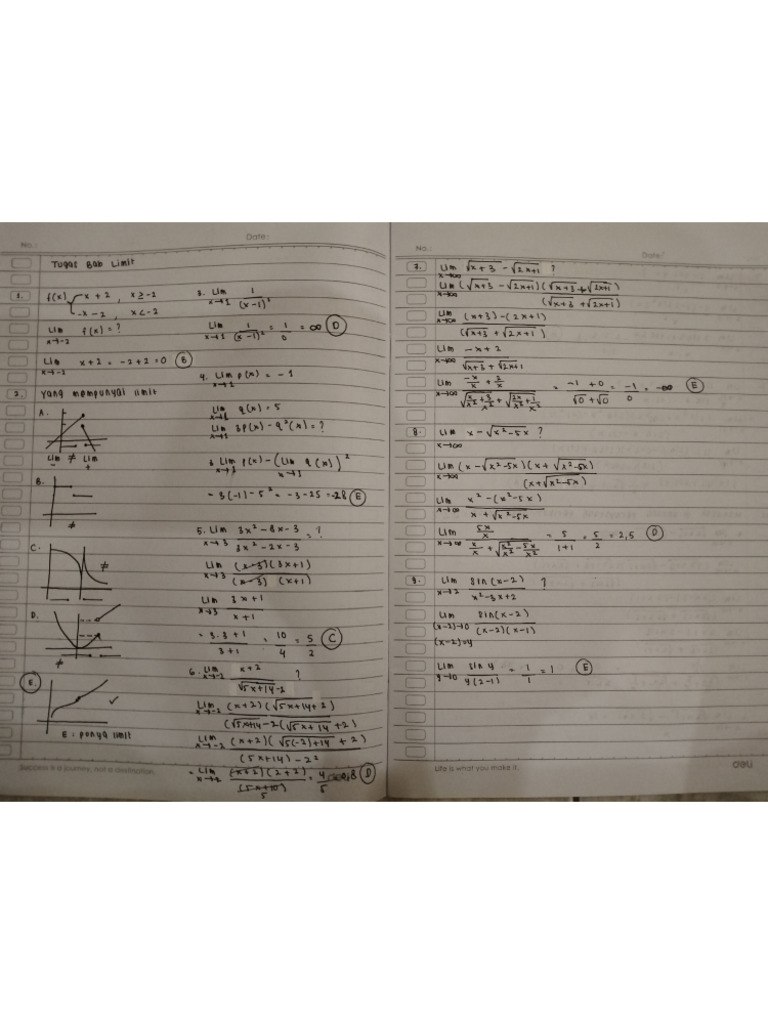 No.:
Date:
Tugas Bab Limit
1. f(x) { x + 2 , x ≥ -2
-x - 2 , x < -2
Lim x→-2 f(x) = ?
Lim x→-2 x + 2 = -2 + 2 = 0 (B)
2. Yang mempunyai limit
A.
Lim - ≠ Lim +
B.
≠
C.
≠
D.
≠
E. ✓
E : punya limit
3. Lim x→1 1/(x-1)²
Lim x→1 1/(x-1)² = 1/0 = ∞ (D)
4. Lim x→1 p(x) = -1
Lim x→1 q(x) = 5
Lim x→1 3p(x) - q²(x) = ?
Lim p(x) - (Lim x→1 q(x))²
= 3(-1) - 5² = -3 - 25 = -28 (E)
5. Lim x→3 3x² - 8x - 3 / 3x² - 2x - 3 = ?
Lim x→3 (x-3)(3x+1) / (x-3) (x+1)
Lim x→3 3x + 1 / x + 1
= 3.3 + 1 / 3 + 1 = 10/4 = 5/2 (C)
6. Lim x→-2 x + 2 / √5x+14 - 2 ?
Lim x→-2 (x+2)(√5x+14 + 2) / (√5x+14 - 2(√5x+14 + 2)
Lim x→-2 (x+2)(√5(-2)+14 + 2) / (5x+14) - 2²
= Lim (x+2)(2+2) / (5x+10) 5 = 4/5 0,8 (D)
Success is a journey, not a destination.
No.:
Date:
7. Lim x→∞ √x+3 - √2x+1 ?
Lim x→∞ (√x+3 - √2x+1)(√x+3 + √2x+1) / (√x+3 + √2x+1)
Lim x→∞ (x+3) - (2x+1) / (√x+3 + √2x+1)
Lim x→∞ -x + 2 / √x+3 + √2x+1
Lim x→∞ -x/x + 2/x / √x/x² + 3/x² + √2x/x² + 1/x² = -1 + 0 / √0 + √0 = -1/0 = -∞ (E)
8. Lim x→∞ x - √x²-5x ?
Lim x→∞ (x - √x²-5x)(x + √x²-5x) / (x + √x²-5x)
Lim x→∞ x² - (x²-5x) / x + √x²-5x
Lim x→∞ 5x/x / x/x + √x²/x² - 5x/x² = 5/1+1 = 5/2 = 2,5 (D)
9. Lim x→2 sin(x-2) / x²-3x+2 ?
Lim (x-2)→0 sin(x-2) / (x-2)(x-1)
(x-2)=y
Lim y→0 sin y / y(2-1) = 1/1 = 1 (E)
Life is what you make it.
deli